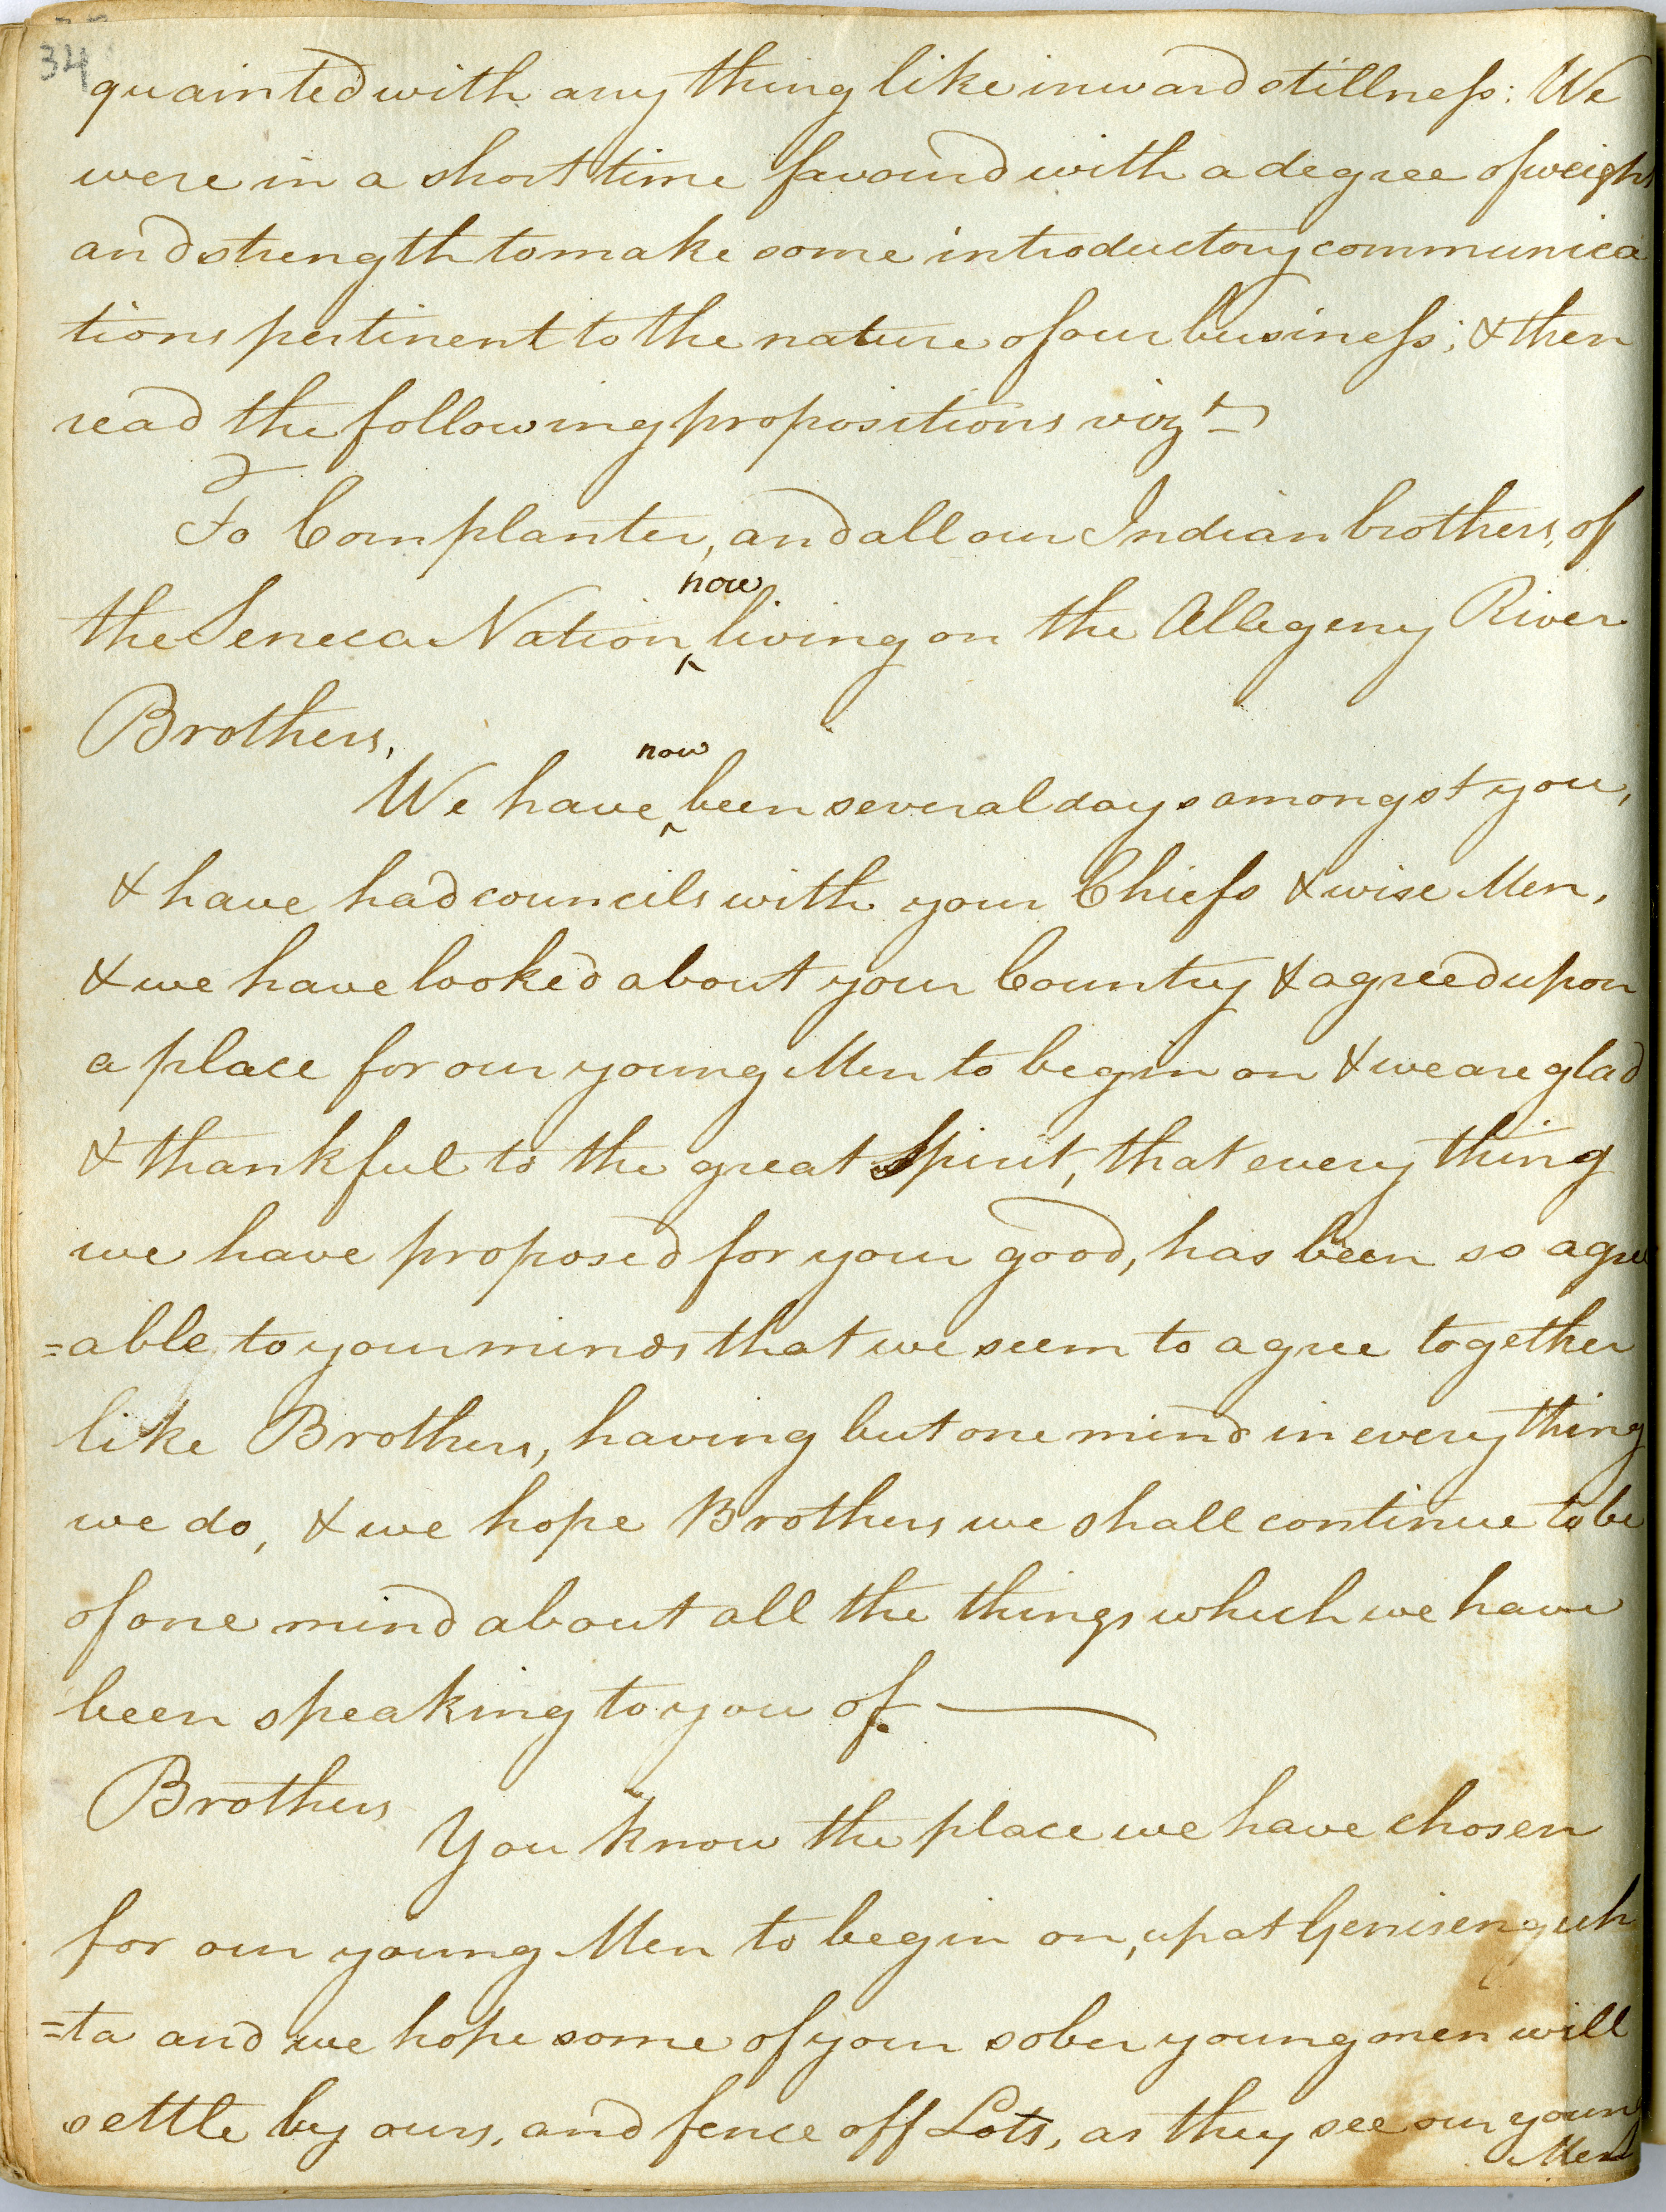 34
quainted with any thing like inward stillness: We
were in a short time favour'd with a degree of weight
and strength to make some introductory communica
tions pertinent to the nature of our business; & then
read the following propositions vizt
To Cornplanter, and all our Indian brothers, of
now
the Seneca Nation, living on the Allegeny River
Brothers,
now
We have been several days amongst you,
& have had councils with your Chiefs & wise Men,
& we have looked about your Country & agreed upon
a place for our young Men to begin on & we are glad
& thankful to the great Spirit, that every thing
we have proposed for your good, has been so agree
=able to your minds that we seem to agree together
like Brothers, having but one mind in every thing
we do, & we hope Brothers we shall continue to be
of one mind about all the things which we have
been speaking to you of.
Brothers
You know the place we have chosen
for our young Men to begin on, up at Genisenguh
=ta and we hope some of your sober young men will
settle by ours, and fence off Lots, as they see our young
Men